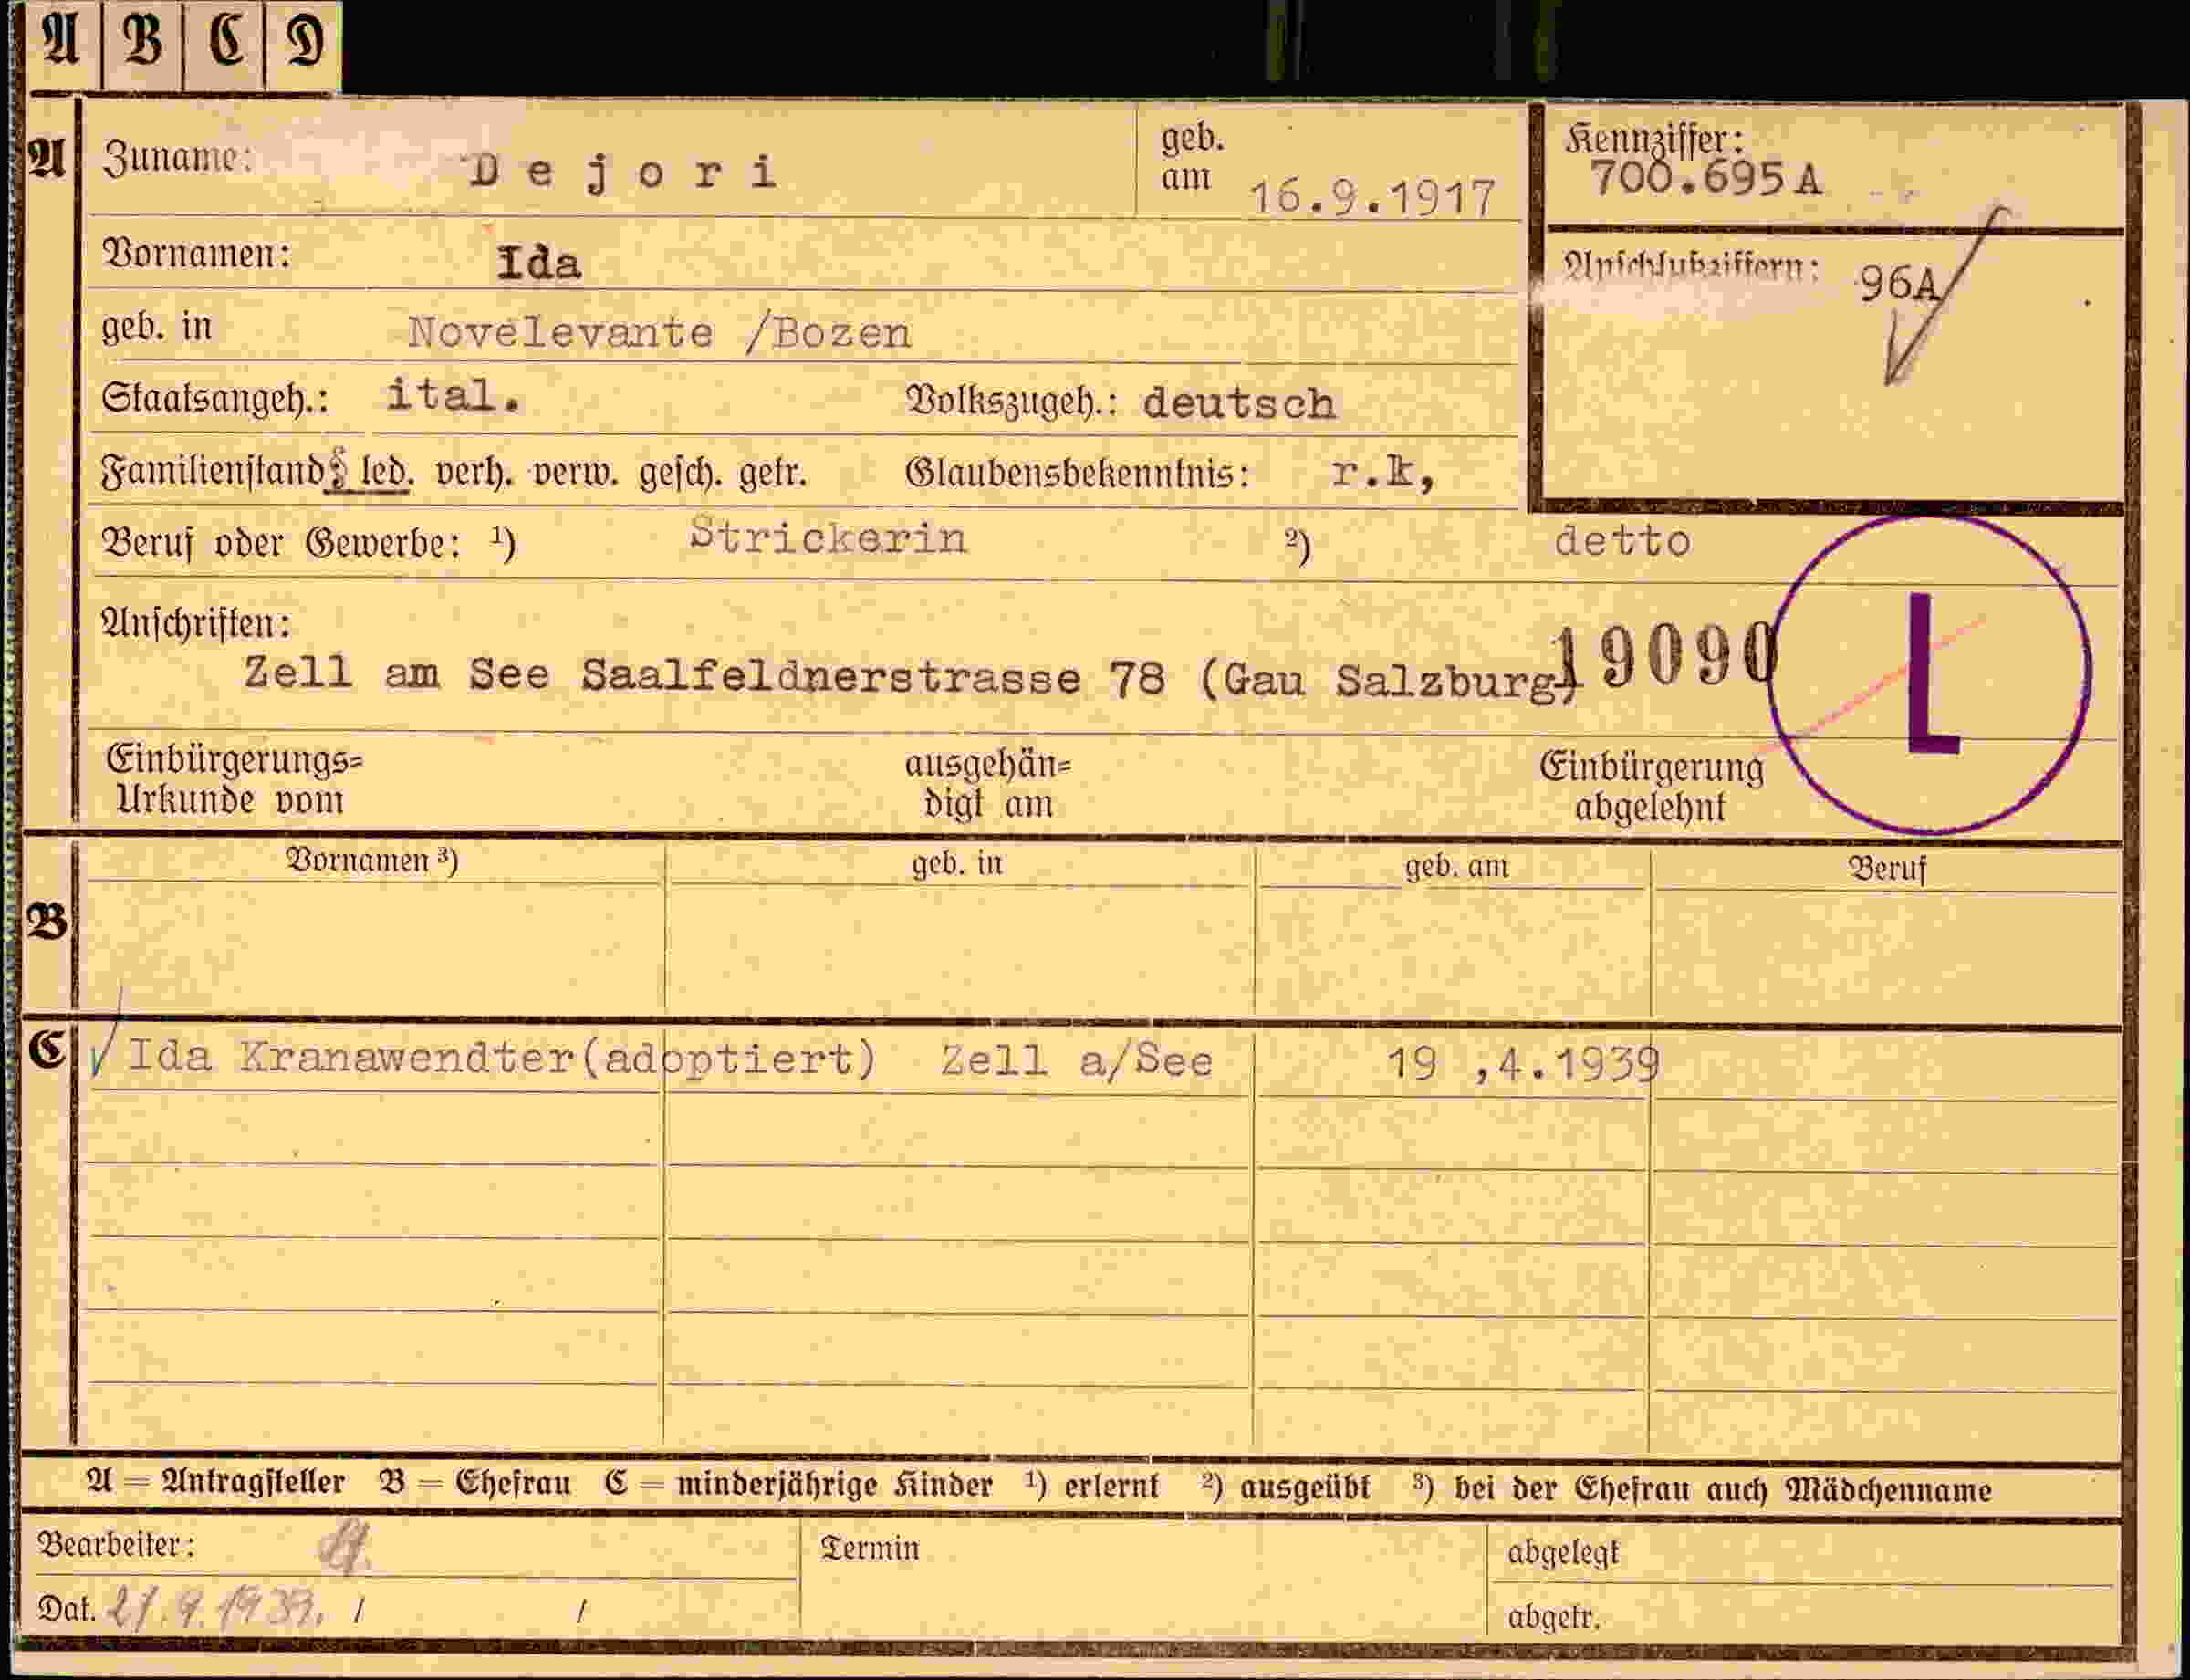 A B C D
A Zuname: Dejori geb. am 16.9.1917 Kennziffer: 700.695 A
Vornamen: Ida Anschlußziffern: 96A
geb. in Novelevante /Bozen
Staatsangeh.: ital. Volkszugeh.: deutsch
Familienstand: led. verh. verw. gesch. getr. Glaubensbekenntnis: r.k,
Beruf oder Gewerbe: ¹) Strickerin ²) detto
Anschriften:
Zell am See Saalfeldnerstrasse 78 (Gau Salzburg) 19090 L
Einbürgerungs= ausgehän= Einbürgerung
Urkunde vom digt am abgelehnt
Vornamen ³) geb. in geb. am Beruf
B
C Ida Kranawendter(adoptiert) Zell a/See 19 ,4.1939
A = Antragsteller B = Ehefrau C = minderjährige Kinder ¹) erlernt ²) ausgeübt ³) bei der Ehefrau auch Mädchenname
Bearbeiter: Termin abgelegt
Dat. 21.9.1939. / / abgetr.